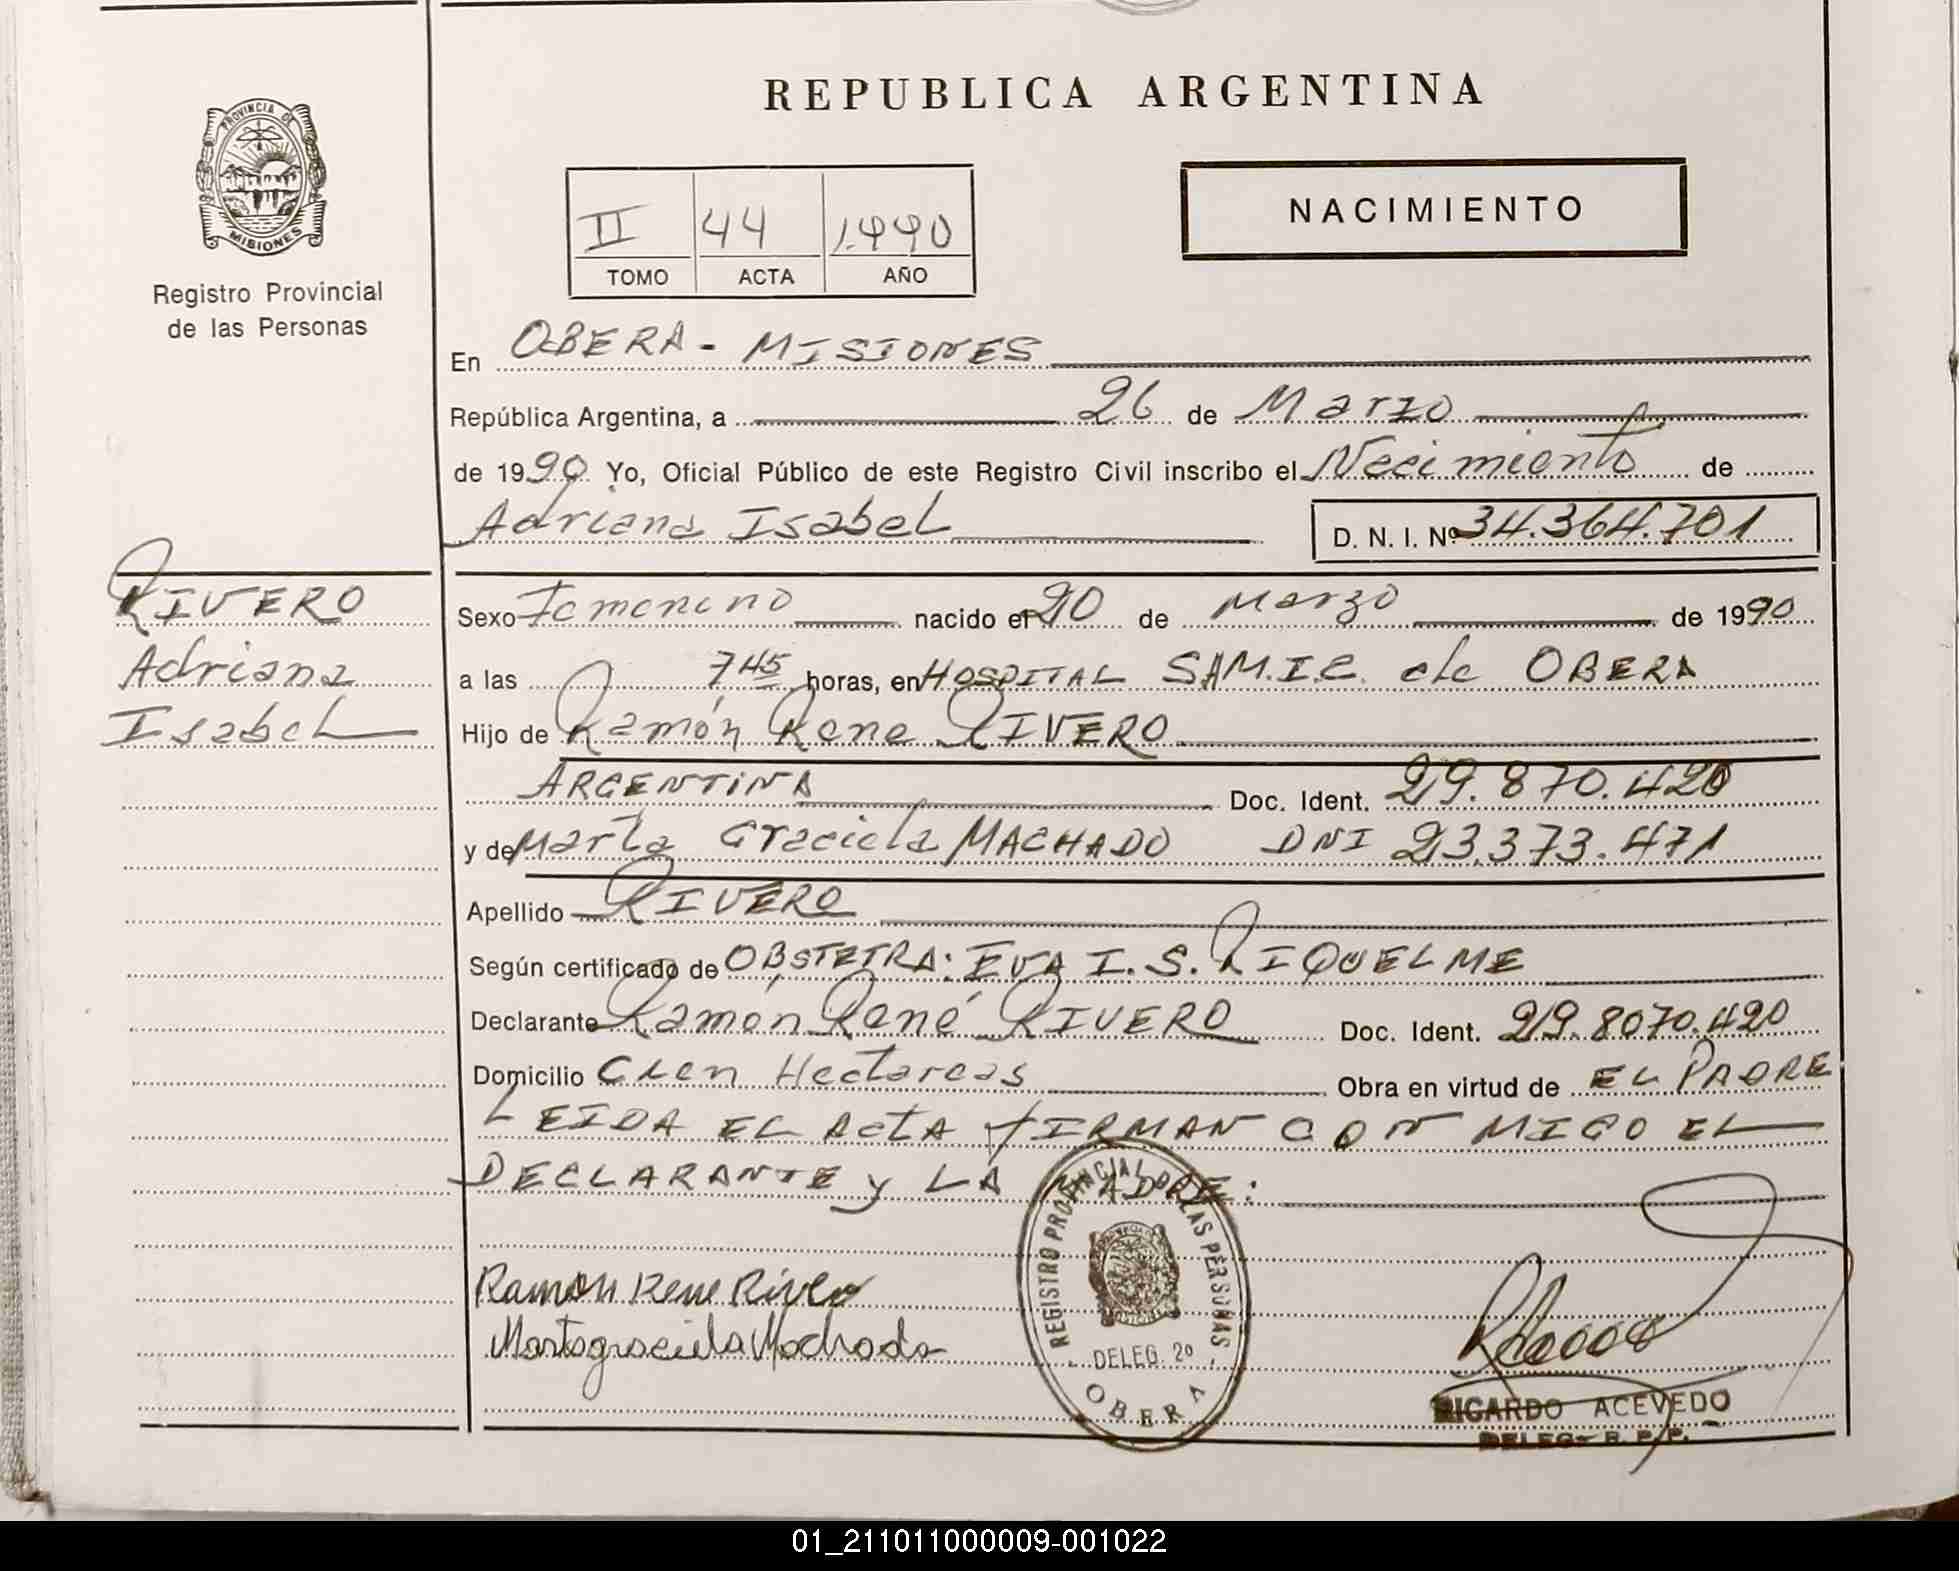 REPUBLICA ARGENTINA
PROVINCIA DE
MISIONES
Registro Provincial
de las Personas
II 44 1.990
TOMO ACTA AÑO
NACIMIENTO
En OBERA - MISIONES
República Argentina, a 26 de Marzo
de 1990 Yo, Oficial Público de este Registro Civil inscribo el Necimiento de
Adriana Isabel D. N. I. Nº 34.364.701
RIVERO
Adriana
Isabel
Sexo Femenino nacido el 20 de Marzo de 1990
a las 7 45 horas, en HOSPITAL SAM.I.C. de OBERA
Hijo de Ramón Rene RIVERO
ARGENTINA Doc. Ident. 29.870.420
y de Marta Graciela MACHADO DNI 23.373.471
Apellido RIVERO
Según certificado de OBSTETRA: EVA I. S. RIQUELME
Declarante Ramón René RIVERO Doc. Ident. 29.8070.420
Domicilio Cien Hectareas Obra en virtud de EL PADRE
LEIDA EL ACTA FIRMAN CON MIGO EL
DECLARANTE y LA MADRE:
Ramon Rene Rivero
Marta graciela Machado
REGISTRO PROVINCIAL DE LAS PERSONAS
DELEG. 2º
OBERA
RICARDO ACEVEDO
DELEG. R. P. P.
01_211011000009-001022